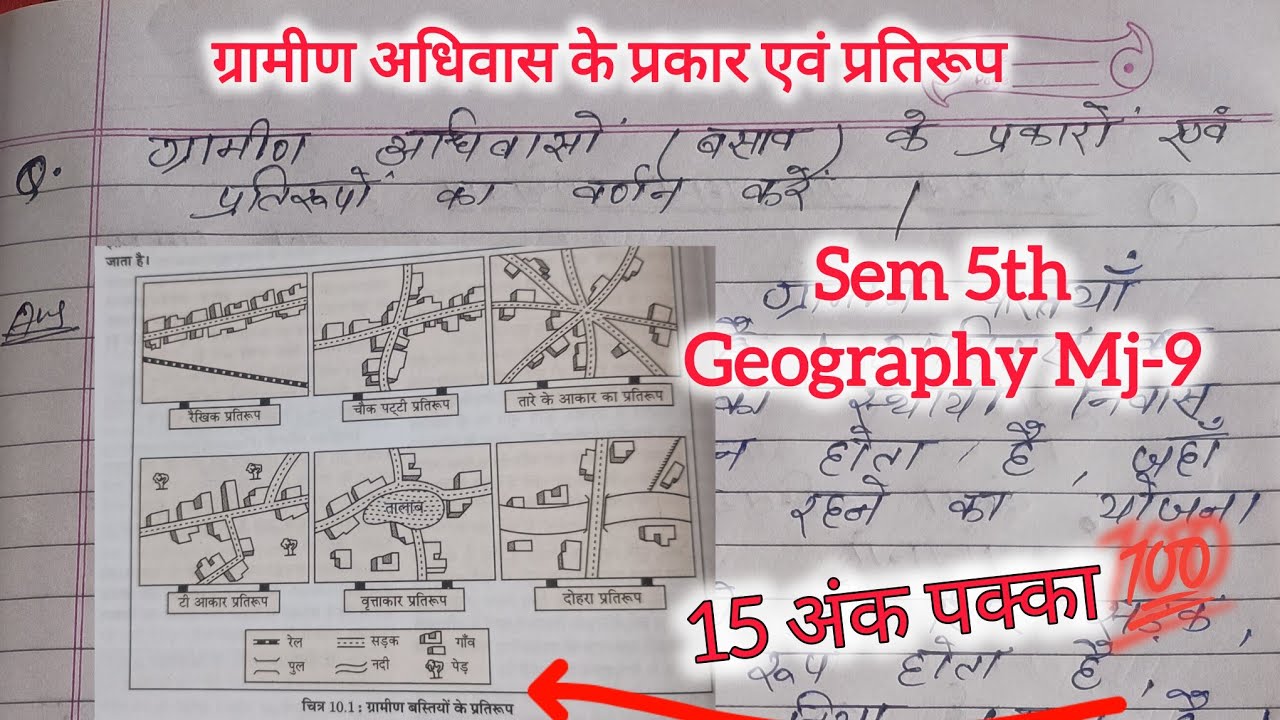 ग्रामीण अधिवास के प्रकार एवं प्रतिरूप
Q. ग्रामीण अधिवासों (बसाव) के प्रकारों एवं
प्रतिरूपों का वर्णन करें।
जाता है।
Sem 5th
Geography Mj-9
Ans
रैखिक प्रतिरूप
चौक पट्टी प्रतिरूप
तारे के आकार का प्रतिरूप
का स्थायी निवास
न होता है, जहाँ
रहने का योजना
तालाब
टी आकार प्रतिरूप
वृत्ताकार प्रतिरूप
दोहरा प्रतिरूप
15 अंक पक्का 100
रेल सड़क गाँव
पुल नदी पेड़
सड़क,
रूप होता है,
चित्र 10.1 : ग्रामीण बस्तियों के प्रतिरूप